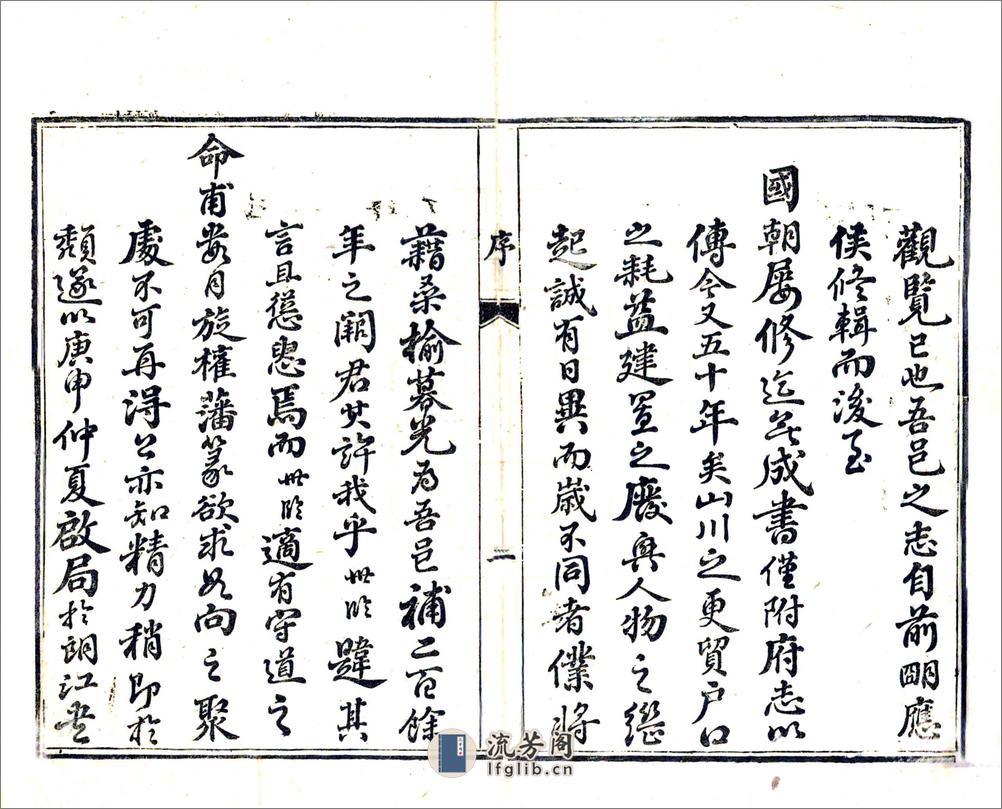 觀覽已也吾邑之志自前明應
侯修輯而後至
國朝屢修迄無成書僅附府志以
傳今又五十年矣山川之更貿户口
之耗益建置之廢興人物之繼
起誠有日異而歲不同者僕將
序
二
藉桑榆暮光為吾邑補二百餘
年之闕君其許我乎世臨韙其
言且慫恿焉而世臨適有守道之
命甫數月旋權藩篆欲求如向之聚
處不可再得公亦知精力稍即於
頹遂以庚申仲夏啟局於朗江書
流芳阁
lfglib.cn